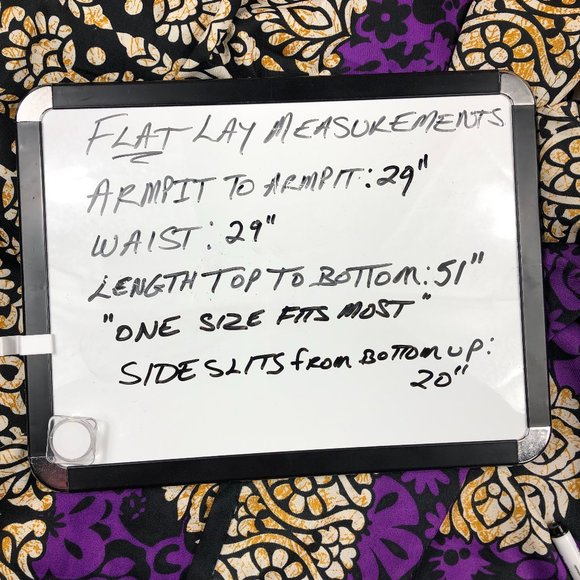 FLAT LAY MEASUREMENTS
ARMPIT TO ARMPIT: 29"
WAIST: 29"
LENGTH TOP TO BOTTOM: 51"
"ONE SIZE FITS MOST"
SIDE SLITS from BOTTOM UP:
20"